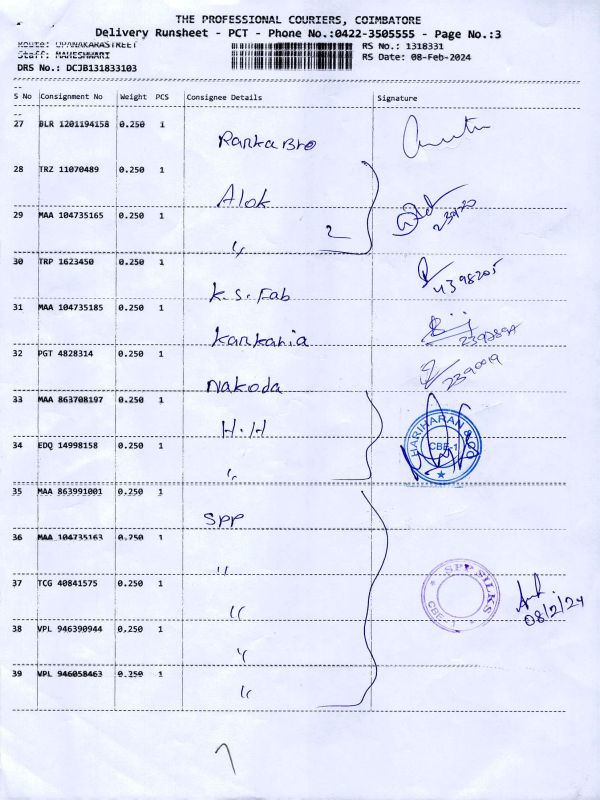 THE PROFESSIONAL COURIERS, COIMBATORE
Delivery Runsheet - PCT - Phone No.:0422-3505555 - Page No.:3
Route: UPANAKARASTREET
RS No.: 1318331
Staff: MAHESHWARI
RS Date: 08-Feb-2024
DRS No.: DCJB131833103
S No Consignment No Weight PCS Consignee Details Signature
27 BLR 1201194158 0.250 1
Ranka Bro
28 TRZ 11070489 0.250 1
Alok
29 MAA 104735165 0.250 1
" 2
30 TRP 1623450 0.250 1
K.S. Fab
4398205
31 MAA 104735185 0.250 1
Karkania
32 PGT 4828314 0.250 1
Nakoda
33 MAA 863708197 0.250 1
H.H
HARIHARAN & CO
CBE-1
34 EDQ 14998158 0.250 1
"
35 MAA 863991001 0.250 1
SPP
36 MAA 104735163 0.250 1
"
37 TCG 40841575 0.250 1
"
SPP SILKS
CBE-1
08/2/24
38 VPL 946390944 0.250 1
"
39 VPL 946058463 0.250 1
"